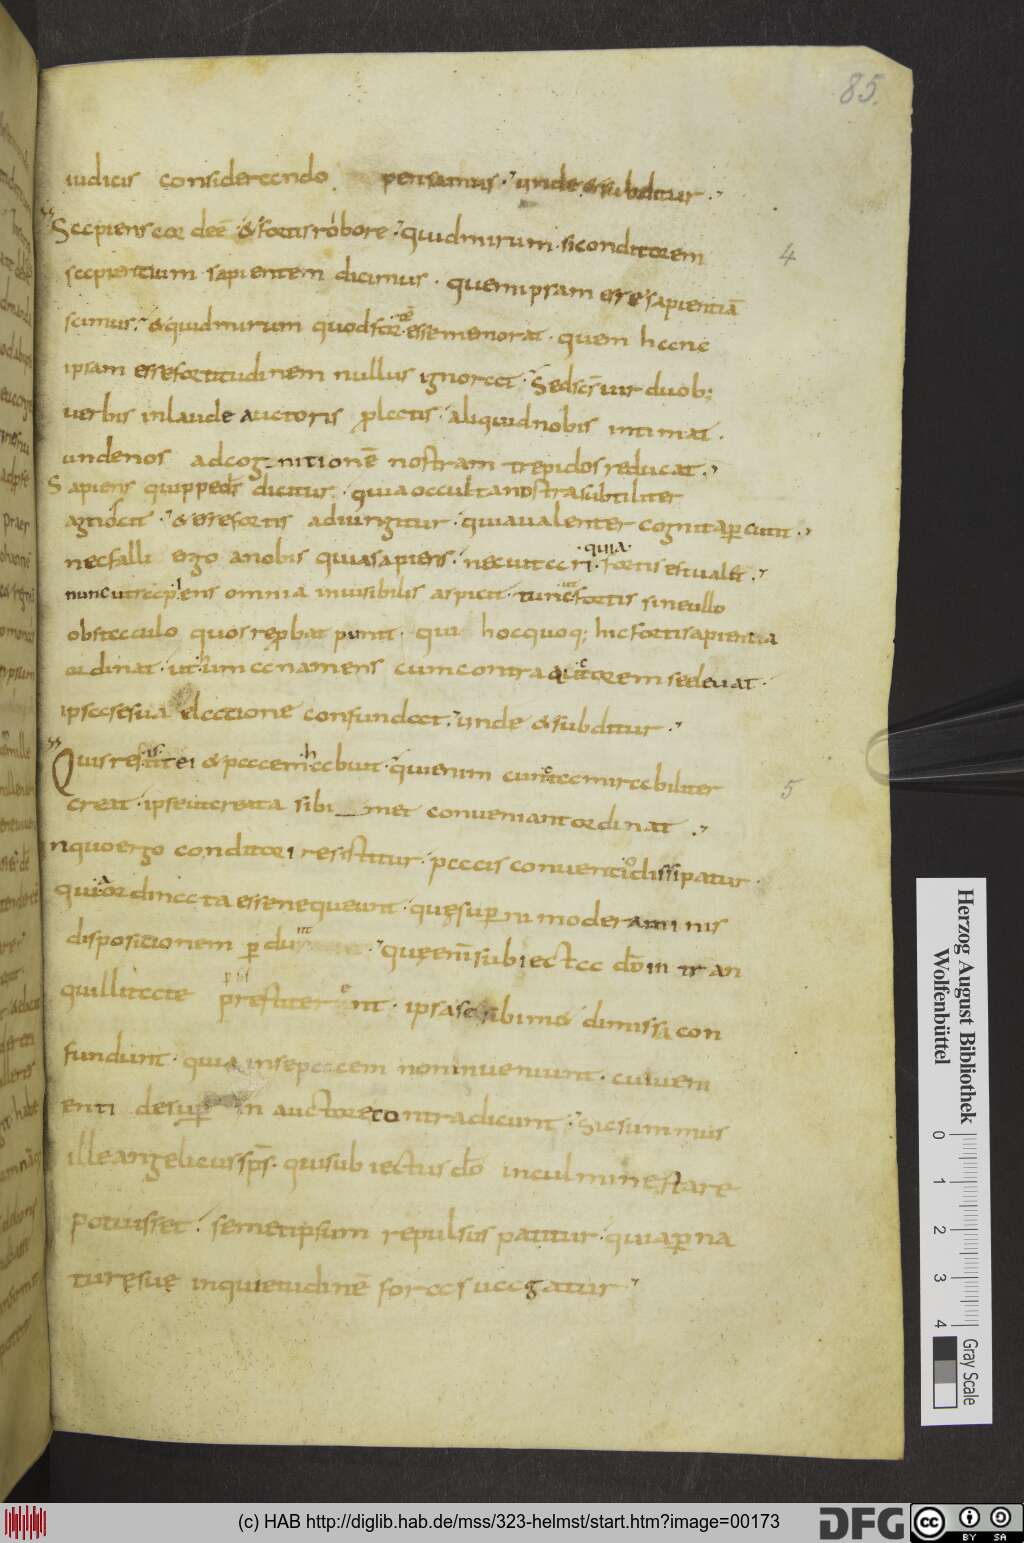 85.
iudicis considerando pensamus. unde & subditur.
Sapiens cor deē. & fortis robore. quid mirum. si conditorem
sapientium sapientem dicimus. quem ipsam esse sapientiā
scimus. & quid mirum quod fortē esse memorat. quem hanc
ipsam esse fortitudinem nullus ignorat. Sed scs uir duob;
uerbis in laude auctoris placitis. aliquid nobis intimat.
unde nos ad cognitionē nostram trepidos reducat.
Sapiens quippe ds dicitur. quia occulta nostra subtiliter
agnoscit. & esse fortis adiungitur. quia ualenter cognita pcutit.
nec falli ergo a nobis quia sapiens. nec uitari quia fortis est ualet.
nunc ut sapiens omnia inuisibilis aspicit. tunc ut fortis sine ullo
obstaculo quos reprobat punit. qui hoc quoq; hic forti sapientia
ordinat. ut humana mens cum contra auctorem se deuat.
ipsa se sua elatione confundat. unde & subditur.
4
Quis restitit ei & pacem habuit. qui enim cuncta mirabiliter
creat. ipse ut creata sibimet conueniant ordinat.
In quo ergo conditori resistitur. pacis conuentio dissipatur.
quia ordinata esse nequeunt. quę supni moderaminis
dispositionem pdunt. quę enī subiecta dō in tran
quillitate prestiterent. ipsa se sibimet dimissa con
fundunt. quia in se pacem non inueniunt. cui uem
enti desup in auctore contradicunt. Sic summus
ille angelicus sps. qui subiectus dō in culmine stare
potuisset. semetipsum repulsus patitur. quia p na
turę suę inquietudinē foras uagatur
5
Herzog August Bibliothek
Wolfenbüttel
0 1 2 3 4
Gray Scale
(c) HAB http://diglib.hab.de/mss/323-helmst/start.htm?image=00173
DFG
cc BY SA